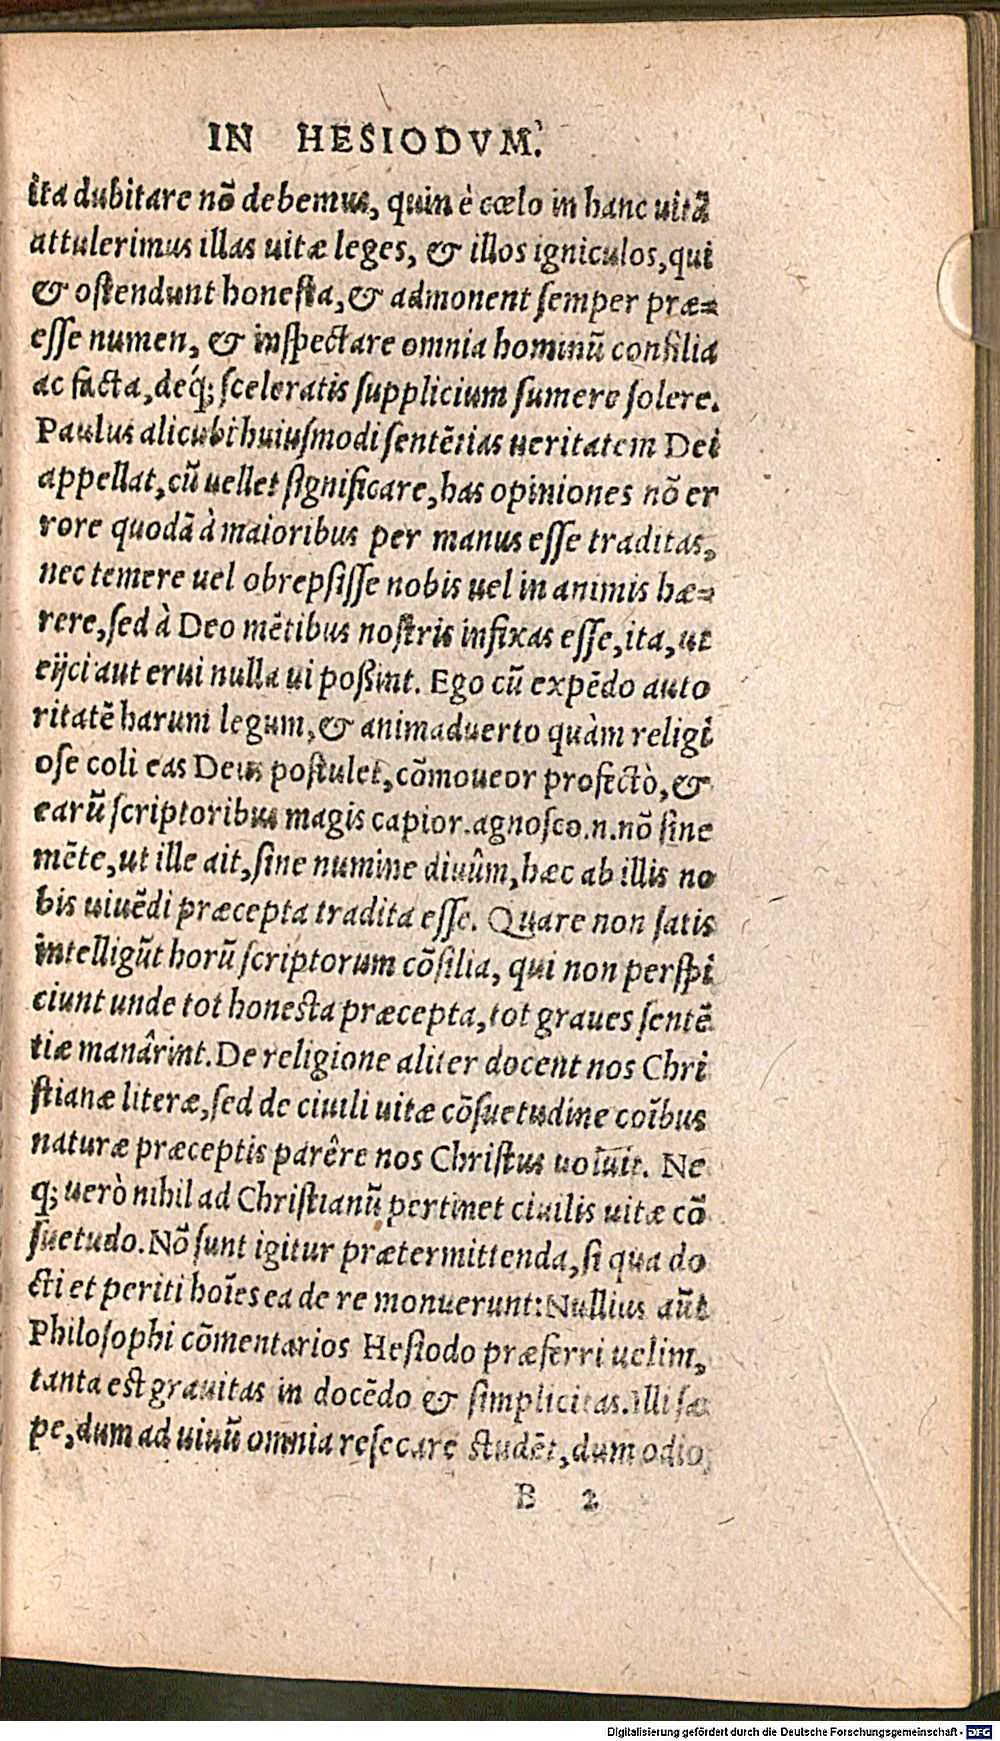 IN HESIODVM.
ita dubitare nō debemus, quin è cœlo in hanc uitā
attulerimus illas uitæ leges, & illos igniculos, qui
& ostendunt honesta, & admonent semper præ=
esse numen, & inspectare omnia hominū consilia
ac facta, deq́; sceleratis supplicium sumere solere.
Paulus alicubi huiusmodi sentētias ueritatem Dei
appellat, cū uellet significare, has opiniones nō er
rore quodā à maioribus per manus esse traditas,
nec temere uel obrepsisse nobis uel in animis hæ=
rere, sed à Deo mētibus nostris infixas esse, ita, ut
eijci aut erui nulla ui possint. Ego cū expēdo auto
ritatē harum legum, & animaduerto quàm religi
ose coli eas Deus postulet, cōmoueor profectò, &
earū scriptoribus magis capior. agnosco.n.nō sine
mēte, ut ille ait, sine numine diuûm, hæc ab illis no
bis uiuēdi præcepta tradita esse. Quare non satis
intelligūt horū scriptorum cōsilia, qui non perspi
ciunt unde tot honesta præcepta, tot graues sentē
tiæ manârint. De religione aliter docent nos Chri
stianæ literæ, sed de ciuili uitæ cōsuetudine coībus
naturæ præceptis parêre nos Christus uoluit. Ne
q; uerò nihil ad Christianū pertinet ciuilis uitæ cō
suetudo. Nō sunt igitur prætermittenda, si qua do
cti et periti hoīes ea de re monuerunt: Nullius aūt
Philosophi cōmentarios Hesiodo præferri uelim,
tanta est grauitas in docēdo & simplicitas. Illi sæ
pe, dum ad uiuū omnia resecare studēt, dum odio
B 2
Digitalisierung gefördert durch die Deutsche Forschungsgemeinschaft - DFG